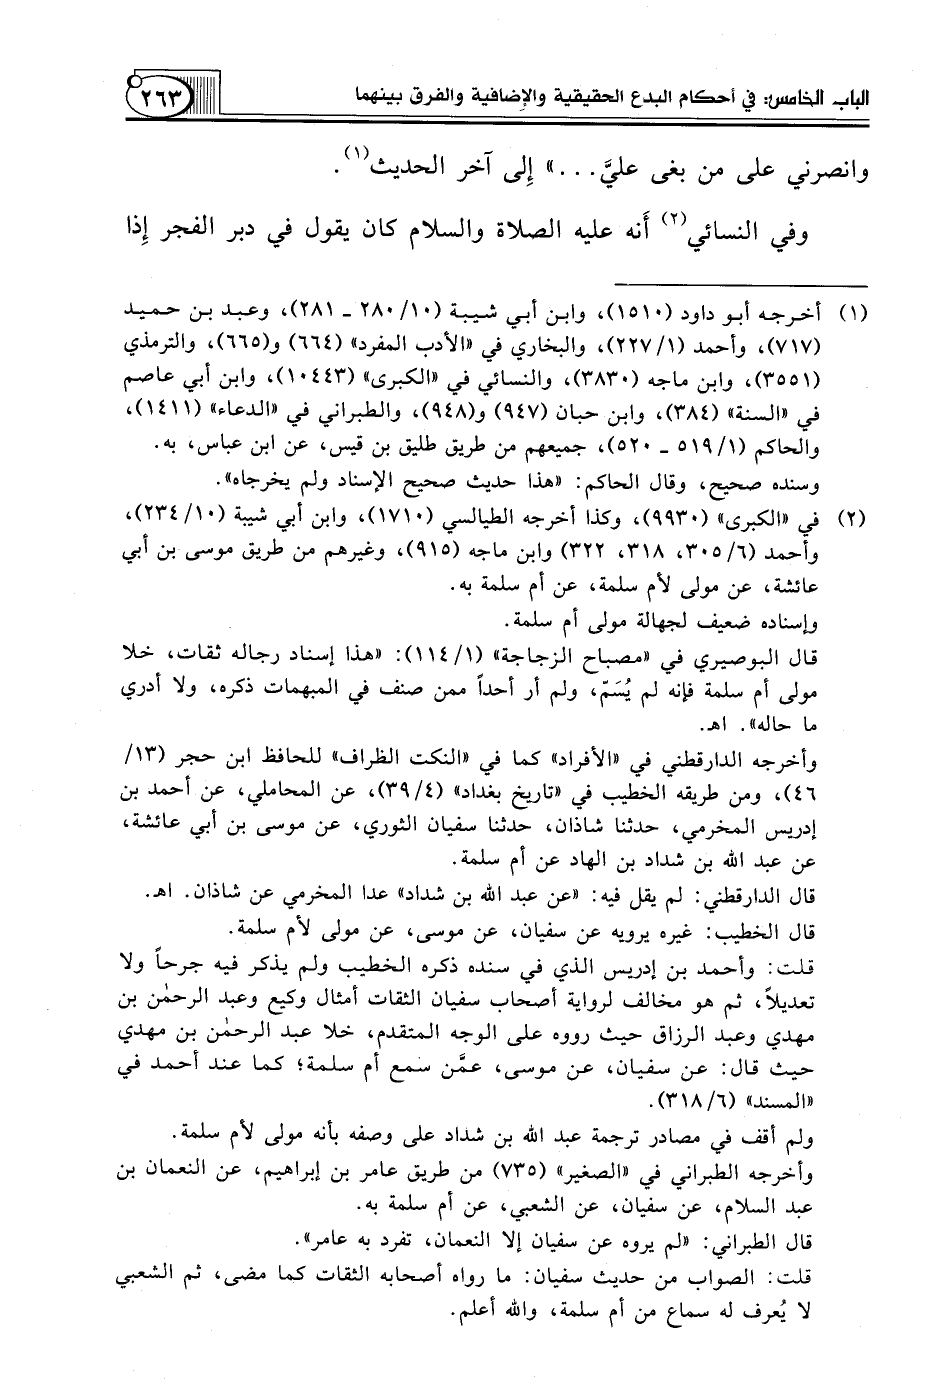 الباب الخامس: في أحكام البدع الحقيقية والإضافية والفرق بينهما
٢٦٣
وانصرني على من بغى عليَّ...» إِلى آخر الحديث(١).
وفي النسائي(٢) أَنه عليه الصلاة والسلام كان يقول في دبر الفجر إِذا
(١) أخرجه أبو داود (١٥١٠)، وابن أبي شيبة (١٠/ ٢٨٠ ـ ٢٨١)، وعبد بن حميد
(٧١٧)، وأحمد (١/ ٢٢٧)، والبخاري في «الأدب المفرد» (٦٦٤) و(٦٦٥)، والترمذي
(٣٥٥١)، وابن ماجه (٣٨٣٠)، والنسائي في «الكبرى» (١٠٤٤٣)، وابن أبي عاصم
في «السنة» (٣٨٤)، وابن حبان (٩٤٧) و(٩٤٨)، والطبراني في «الدعاء» (١٤١١)،
والحاكم (١/ ٥١٩ ـ ٥٢٠)، جميعهم من طريق طليق بن قيس، عن ابن عباس، به.
وسنده صحيح، وقال الحاكم: «هذا حديث صحيح الإسناد ولم يخرجاه».
(٢) في «الكبرى» (٩٩٣٠)، وكذا أخرجه الطيالسي (١٧١٠)، وابن أبي شيبة (١٠/ ٢٣٤)،
وأحمد (٦/ ٣٠٥، ٣١٨، ٣٢٢) وابن ماجه (٩١٥)، وغيرهم من طريق موسى بن أبي
عائشة، عن مولى لأم سلمة، عن أم سلمة به.
وإسناده ضعيف لجهالة مولى أم سلمة.
قال البوصيري في «مصباح الزجاجة» (١/ ١١٤): «هذا إسناد رجاله ثقات، خلا
مولى أم سلمة فإنه لم يُسَمّ، ولم أر أحداً ممن صنف في المبهمات ذكره، ولا أدري
ما حاله». اهـ.
وأخرجه الدارقطني في «الأفراد» كما في «النكت الظراف» للحافظ ابن حجر (١٣/
٤٦)، ومن طريقه الخطيب في «تاريخ بغداد» (٤/ ٣٩)، عن المحاملي، عن أحمد بن
إدريس المخرمي، حدثنا شاذان، حدثنا سفيان الثوري، عن موسى بن أبي عائشة،
عن عبد الله بن شداد بن الهاد عن أم سلمة.
قال الدارقطني: لم يقل فيه: «عن عبد الله بن شداد» عدا المخرمي عن شاذان. اهـ.
قال الخطيب: غيره يرويه عن سفيان، عن موسى، عن مولى لأم سلمة.
قلت: وأحمد بن إدريس الذي في سنده ذكره الخطيب ولم يذكر فيه جرحاً ولا
تعديلاً، ثم هو مخالف لرواية أصحاب سفيان الثقات أمثال وكيع وعبد الرحمٰن بن
مهدي وعبد الرزاق حيث رووه على الوجه المتقدم، خلا عبد الرحمٰن بن مهدي
حيث قال: عن سفيان، عن موسى، عمَّن سمع أم سلمة؛ كما عند أحمد في
«المسند» (٦/ ٣١٨).
ولم أقف في مصادر ترجمة عبد الله بن شداد على وصفه بأنه مولى لأم سلمة.
وأخرجه الطبراني في «الصغير» (٧٣٥) من طريق عامر بن إبراهيم، عن النعمان بن
عبد السلام، عن سفيان، عن الشعبي، عن أم سلمة به.
قال الطبراني: «لم يروه عن سفيان إلا النعمان، تفرد به عامر».
قلت: الصواب من حديث سفيان: ما رواه أصحابه الثقات كما مضى، ثم الشعبي
لا يُعرف له سماع من أم سلمة، والله أعلم.